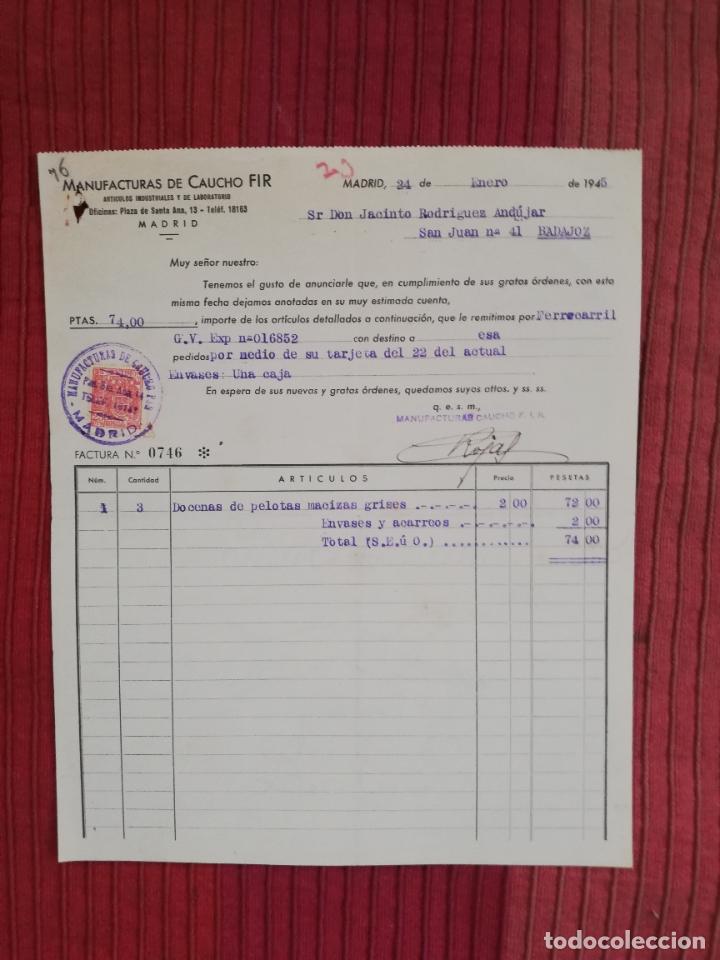 76
20
MANUFACTURAS DE CAUCHO FIR
ARTICULOS INDUSTRIALES Y DE LABORATORIO
Oficinas: Plaza de Santa Ana, 13 - Teléf. 18163
MADRID
MADRID, 24 de Enero de 1945
Sr Don Jacinto Rodriguez Andújar
San Juan nº 41 BADAJOZ
Muy señor nuestro:
Tenemos el gusto de anunciarle que, en cumplimiento de sus gratas órdenes, con esta
misma fecha dejamos anotadas en su muy estimada cuenta,
PTAS. 74,00, importe de los artículos detallados a continuación, que le remitimos por Ferrocarril
G.V. Exp nº016852 con destino a esa
pedidos por medio de su tarjeta del 22 del actual
Envases: Una caja
En espera de sus nuevas y gratas órdenes, quedamos suyos attos. y ss. ss.
q. e. s. m.,
MANUFACTURAS CAUCHO F. I. R.
Rojas
MANUFACTURAS DE CAUCHO FIR
MADRID
FACTURA N.° 0746 ✻
Núm. Cantidad ARTICULOS Precio PESETAS
1 3 Docenas de pelotas macizas grises .-.-.-. 2 00 72 00
Envases y acarreos -.-.-.-. 2 00
Total (S.E.ú O.) ............ 74 00
todocoleccion